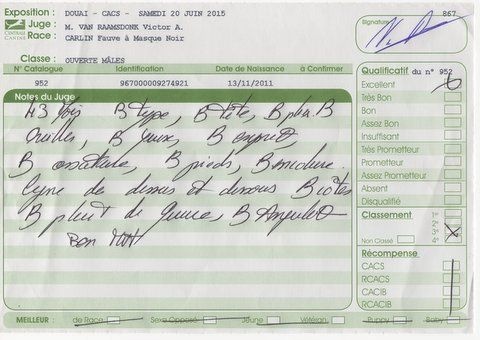 Exposition : DOUAI - CACS - SAMEDI 20 JUIN 2015
Juge : M. VAN RAAMSDONK Victor A.
Race : CARLIN Fauve à Masque Noir
CENTRALE CANINE
Signature
867
Classe : OUVERTE MÂLES
N° Catalogue Identification Date de Naissance à Confirmer
952 967000009274921 13/11/2011
Notes du Juge
B type, B tête, B
B yeux, B
B ossature, B pieds, B
de dessus et dessous B côtes
B de B
Bon
Qualificatif du n° 952
Excellent
Très Bon
Bon
Assez Bon
Insuffisant
Très Prometteur
Prometteur
Assez Prometteur
Absent
Disqualifié
Classement 1e
2e
3e
Non Classé 4e
Récompense
CACS
RCACS
CACIB
RCACIB
MEILLEUR : de Race Sexe Opposé Jeune Vétéran Puppy Baby